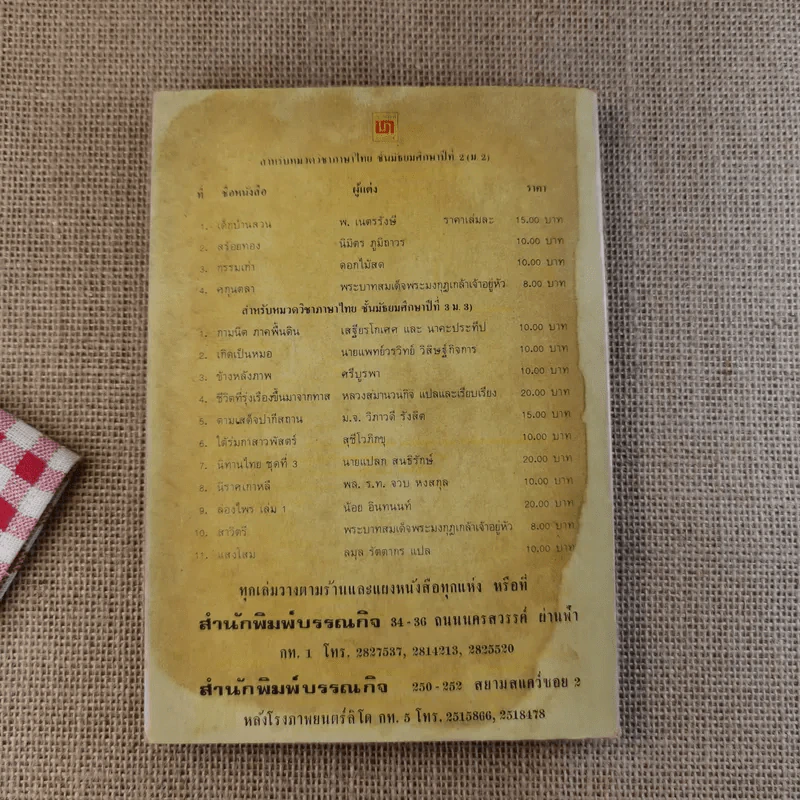 สำหรับหมวดวิชาภาษาไทย ชั้นมัธยมศึกษาปีที่ 2 (ม 2)
ที่ ชื่อหนังสือ ผู้แต่ง ราคา
1. เด็กบ้านสวน พ. เนตรรังษี ราคาเล่มละ 15.00 บาท
2. สร้อยทอง นิมิตร ภูมิถาวร 10.00 บาท
3. กรรมเก่า ดอกไม้สด 10.00 บาท
4. ศกุนตลา พระบาทสมเด็จพระมงกุฎเกล้าเจ้าอยู่หัว 8.00 บาท
สำหรับหมวดวิชาภาษาไทย ชั้นมัธยมศึกษาปีที่ 3 ม. 3)
1. กามนิต ภาคพื้นดิน เสฐียรโกเศศ และ นาคะประทีป 10.00 บาท
2. เกิดเป็นหมอ นายแพทย์วรวิทย์ วิสิษฐ์กิจการ 10.00 บาท
3. ข้างหลังภาพ ศรีบูรพา 10.00 บาท
4. ชีวิตที่รุ่งเรืองขึ้นมาจากทาส หลวงสมานวนกิจ แปลและเรียบเรียง 20.00 บาท
5. ตามเสด็จปากีสถาน ม.จ. วิภาวดี รังสิต 15.00 บาท
6. ใต้ร่มกาสาวพัสตร์ สุชีโวภิกขุ 10.00 บาท
7. นิทานไทย ชุดที่ 3 นายแปลก สนธิรักษ์ 20.00 บาท
8. นิราศเกาหลี พล. ร.ท. จวบ หงสกุล 10.00 บาท
9. ล่องไพร เล่ม 1 น้อย อินทนนท์ 20.00 บาท
10. สาวิตรี พระบาทสมเด็จพระมงกุฎเกล้าเจ้าอยู่หัว 8.00 บาท
11. แสงโสม ลมุล รัตตากร แปล 10.00 บาท
ทุกเล่มวางตามร้านและแผงหนังสือทุกแห่ง หรือที่
สำนักพิมพ์บรรณกิจ 34-36 ถนนนครสวรรค์ ผ่านฟ้า
กท. 1 โทร. 2827537, 2814213, 2825520
สำนักพิมพ์บรรณกิจ 250-252 สยามสแควร์ซอย 2
หลังโรงภาพยนตร์ลิโด กท. 5 โทร. 2515866, 2518478